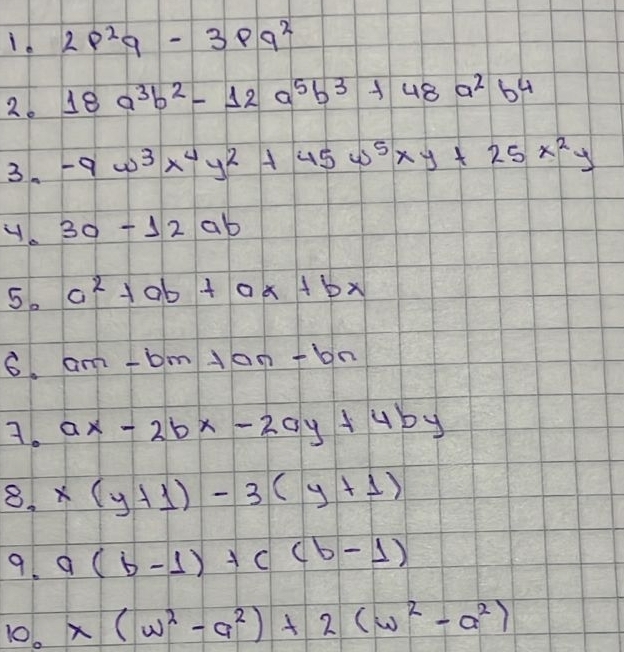 1. 2p²q - 3pq²
2. 18 a³b² - 12 a⁵b³ + 48 a² b⁴
3. -9 w³x⁴y² + 45 w⁵xy + 25 x²y
4. 3a - 12 ab
5. a² + ab + ax + bx
6. am - bm + an - bn
7. ax - 2bx - 2ay + 4by
8. x (y+1) - 3 (y+1)
9. a (b-1) + c (b-1)
10. x (w² - a²) + 2 (w² - a²)